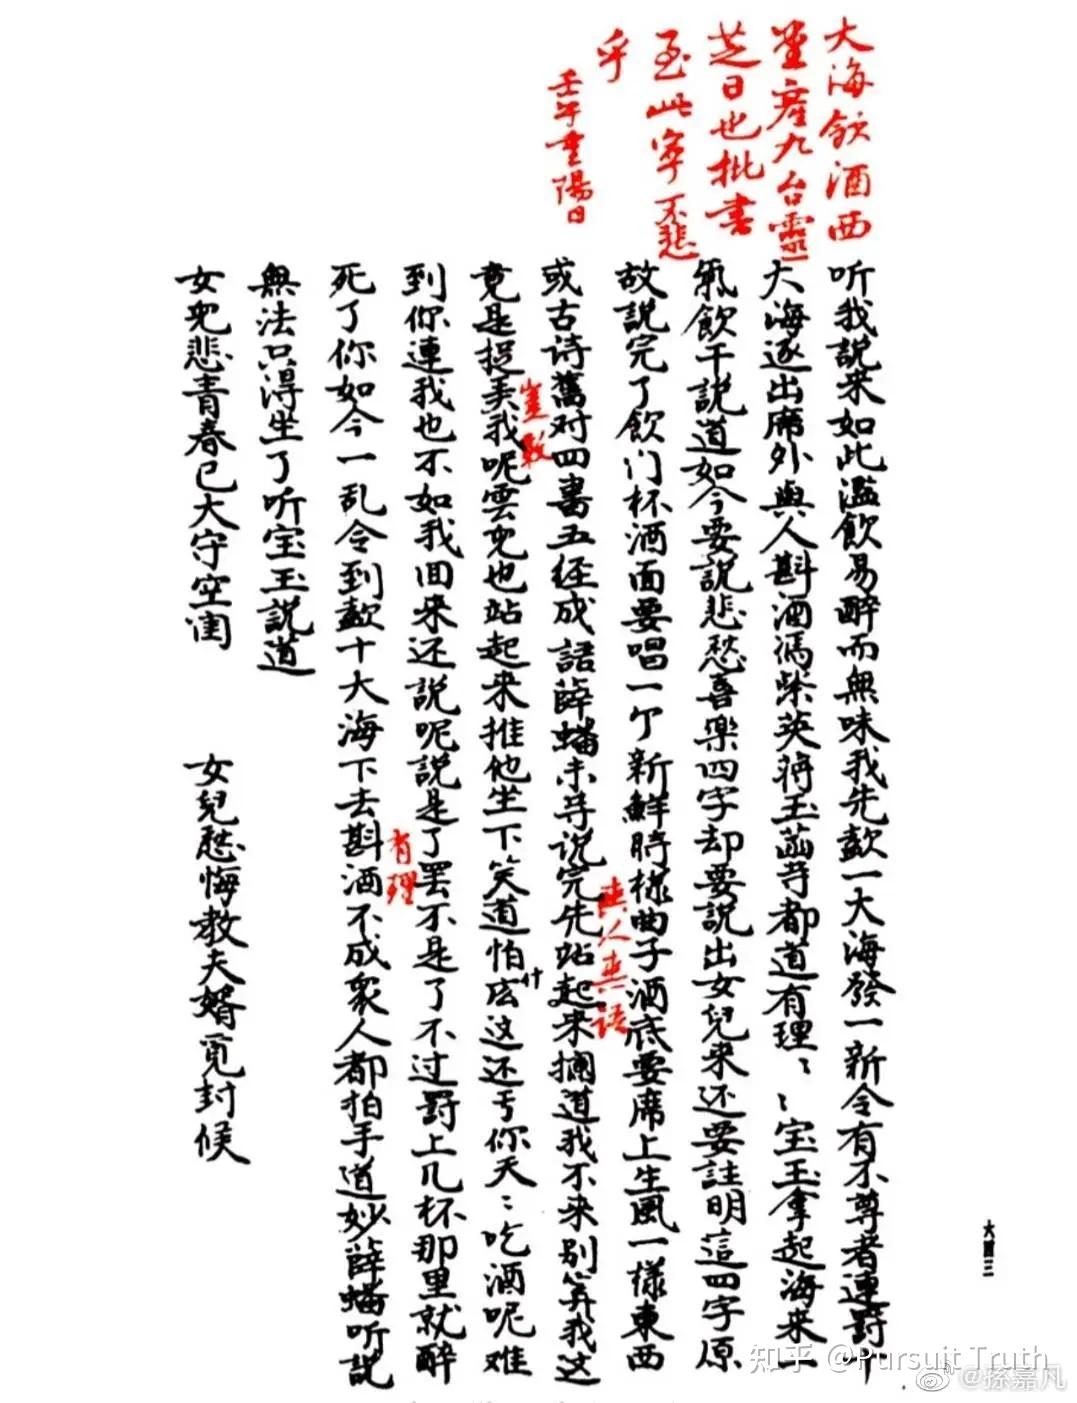 大海飲酒西
堂産九台靈
芝日也批書
至此寧不悲
乎
壬午重陽日
听我說来如此濫飲易醉而無味我先歖一大海發一新令有不尊者連罸十
大海逐出席外與人斟酒馮紫英蔣玉菡等都道有理〻〻宝玉拿起海来一
氣飲干說道如今要說悲愁喜樂四字却要說出女兒来还要註明這四字原
故說完了飲门杯酒面要唱一个新鮮時樣曲子酒底要席上生風一樣東西
或古诗舊对四書五经成語薛蟠未等说完先站起来攔道我不来别算我这
竟是捉弄我呢雲兒也站起来推他坐下笑道怕什庅这还亏你天〻吃酒呢难
到你連我也不如我回来还說呢説是了罢不是了不过罸上几杯那里就醉
死了你如今一乱令到歖十大海下去斟酒不成衆人都拍手道妙薛蟠听説
無法只得坐了听宝玉説道
女兒悲青春已大守空闺
女兒愁悔教夫婿覓封候
豈敢
爽人爽語
有理
大四三
知乎 @Pursuit Truth
@孫嘉凡